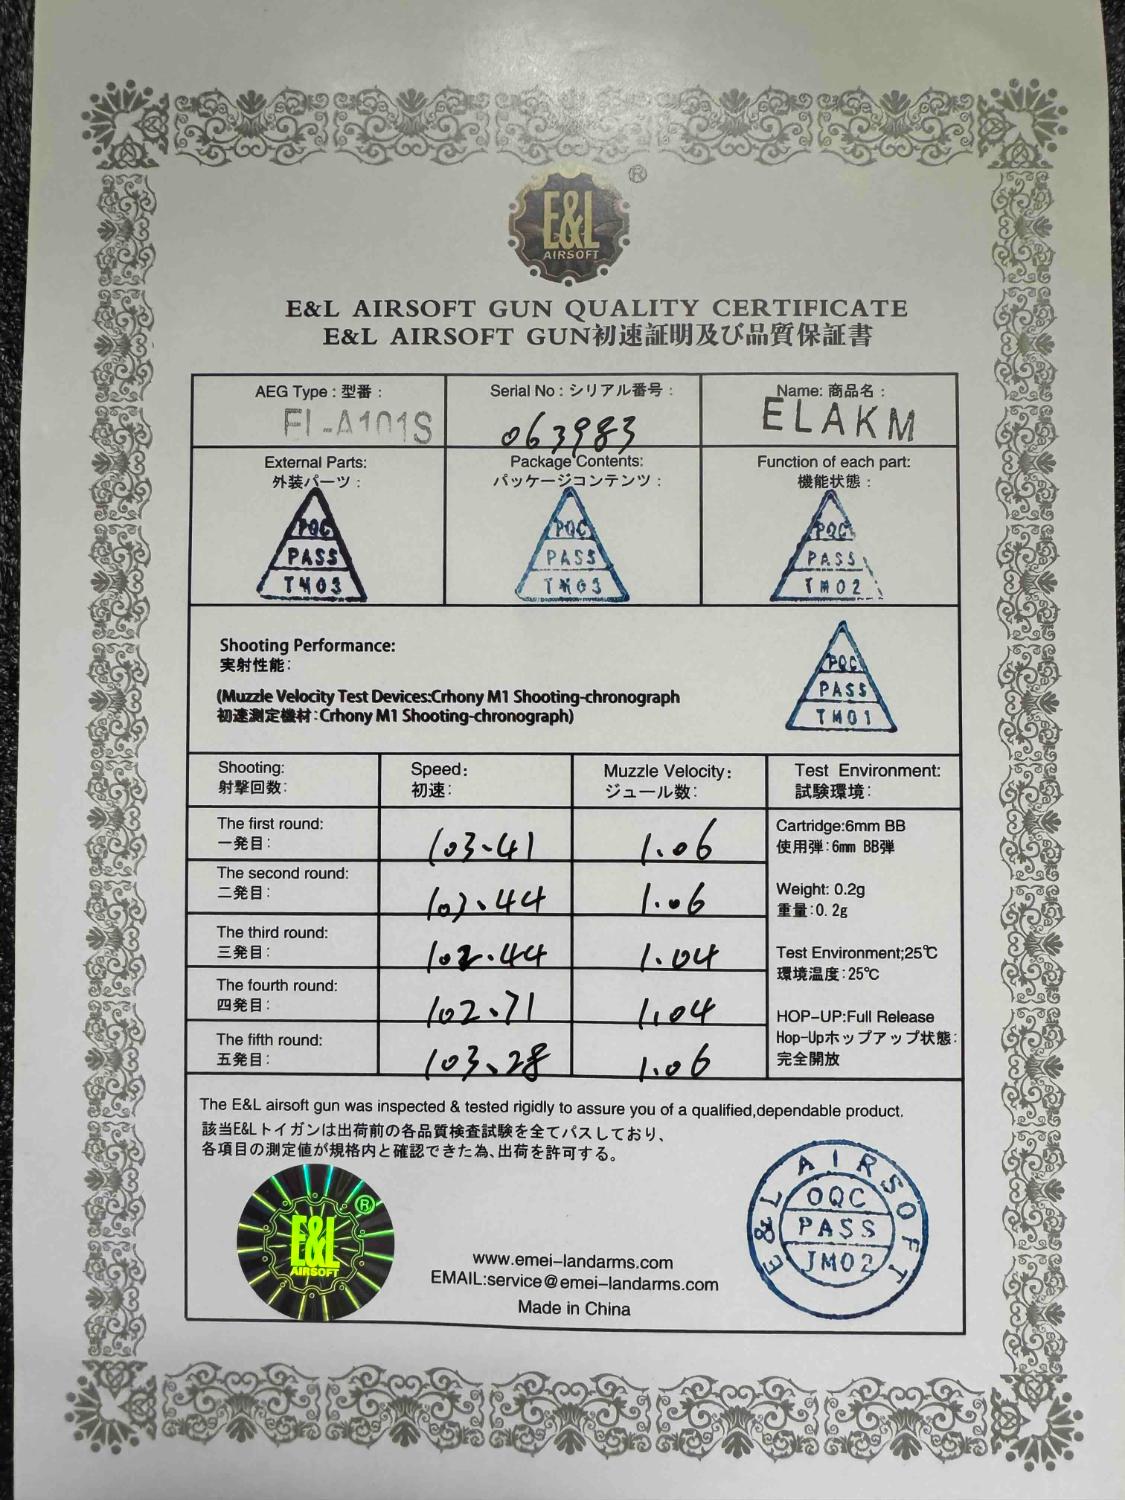 E&L
AIRSOFT
®
E&L AIRSOFT GUN QUALITY CERTIFICATE
E&L AIRSOFT GUN初速証明及び品質保証書
AEG Type : 型番 :
EL-A101S
Serial No : シリアル番号 :
063983
Name: 商品名 :
ELAKM
External Parts:
外装パーツ :
PQC
PASS
TM03
Package Contents:
パッケージコンテンツ :
PQC
PASS
TM03
Function of each part:
機能状態 :
PQC
PASS
TM02
Shooting Performance:
実射性能:
(Muzzle Velocity Test Devices:Crhony M1 Shooting-chronograph
初速測定機材:Crhony M1 Shooting-chronograph)
PQC
PASS
TM01
Shooting:
射撃回数:
Speed:
初速:
Muzzle Velocity:
ジュール数:
Test Environment:
試験環境:
The first round:
一発目:
103.41
1.06
The second round:
二発目:
103.44
1.06
The third round:
三発目:
102.44
1.04
The fourth round:
四発目:
102.71
1.04
The fifth round:
五発目:
103.28
1.06
Cartridge:6mm BB
使用弾:6mm BB弾
Weight: 0.2g
重量:0.2g
Test Environment;25℃
環境温度:25℃
HOP-UP:Full Release
Hop-Upホップアップ状態:
完全開放
The E&L airsoft gun was inspected & tested rigidly to assure you of a qualified,dependable product.
該当E&Lトイガンは出荷前の各品質検査試験を全てパスしており、
各項目の測定値が規格内と確認できた為、出荷を許可する。
®
E&L
AIRSOFT
www.emei-landarms.com
EMAIL:service@emei-landarms.com
Made in China
E&L AIRSOFT
OQC
PASS
JM02